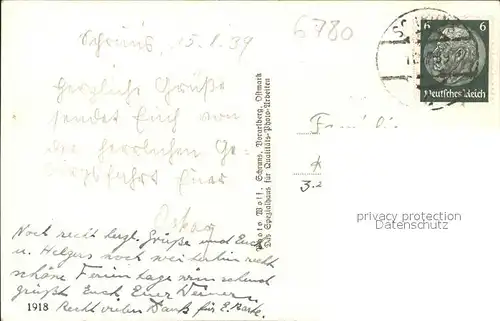 Schruns, 15.1.39
6780
herzliche Grüße
sendet Euch von
der herrlichen Ge-
birgsfahrt Euer
Oskar
Noch recht herzl. Grüße und Euch
u. Helgas noch weiterhin recht
schöne Ferientage wünschend
grüßt Euch Euer Werner.
Recht vielen Dank für E. Karte.
1918
Photo Wolf, Schruns, Vorarlberg, Ostmark
Das Spezialhaus für Qualitäts-Photo-Arbeiten
6 6
Deutsches Reich
Famili
3.2
privacy protection
Datenschutz